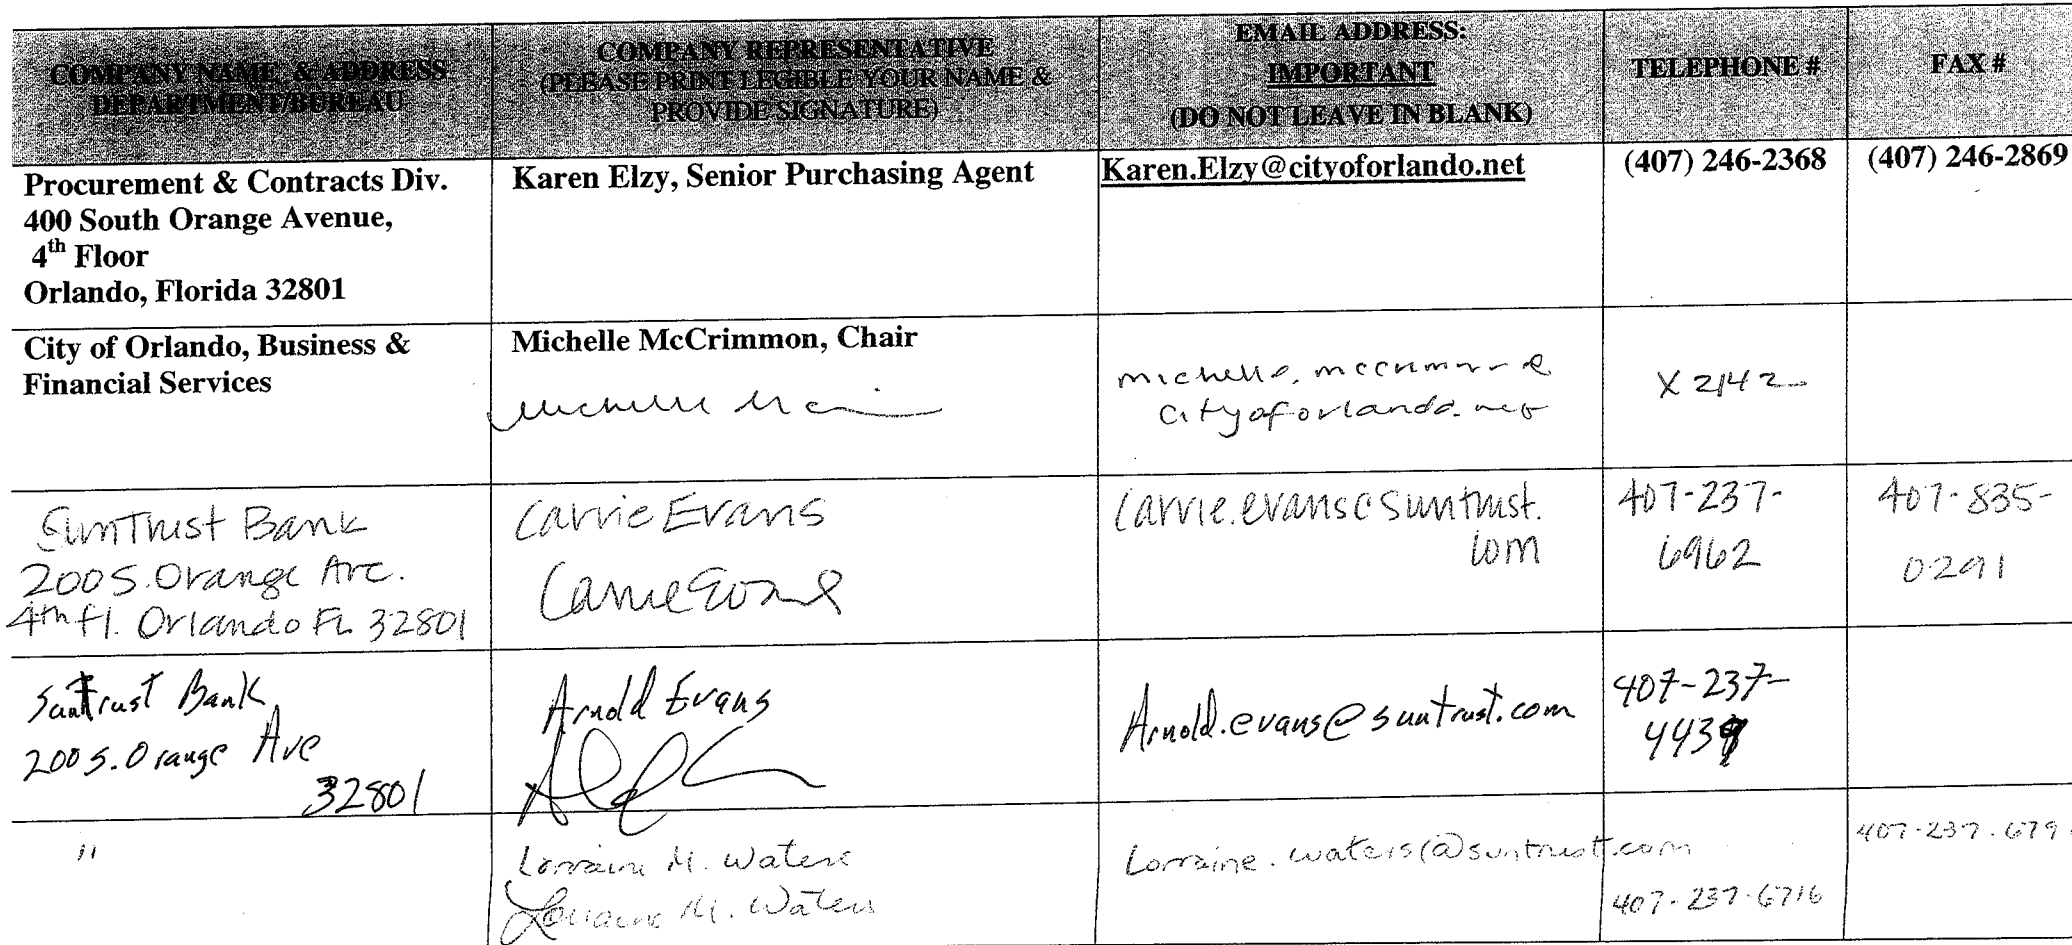 COMPANY NAME, & ADDRESS
DEPARTMENT/BUREAU
COMPANY REPRESENTATIVE
(PLEASE PRINT LEGIBLE YOUR NAME &
PROVIDE SIGNATURE)
EMAIL ADDRESS:
IMPORTANT
(DO NOT LEAVE IN BLANK)
TELEPHONE #
FAX #
Procurement & Contracts Div.
400 South Orange Avenue,
4th Floor
Orlando, Florida 32801
Karen Elzy, Senior Purchasing Agent
Karen.Elzy@cityoforlando.net
(407) 246-2368
(407) 246-2869
City of Orlando, Business &
Financial Services
Michelle McCrimmon, Chair
Michelle
cityoforlando.net
X 2142
SunTrust Bank
200 S. Orange Ave.
4th fl. Orlando FL 32801
Carrie Evans
Carrie Evans
Carrie.evans@suntrust.
com
407-237-
6962
407-835-
0291
SunTrust Bank
200 S. Orange Ave
32801
Arnold Evans
Arnold.evans@suntrust.com
407-237-
443
"
Lorraine M. Waters
Lorraine M. Waters
Lorraine.waters@suntrust.com
407-237-6716
407-237-679